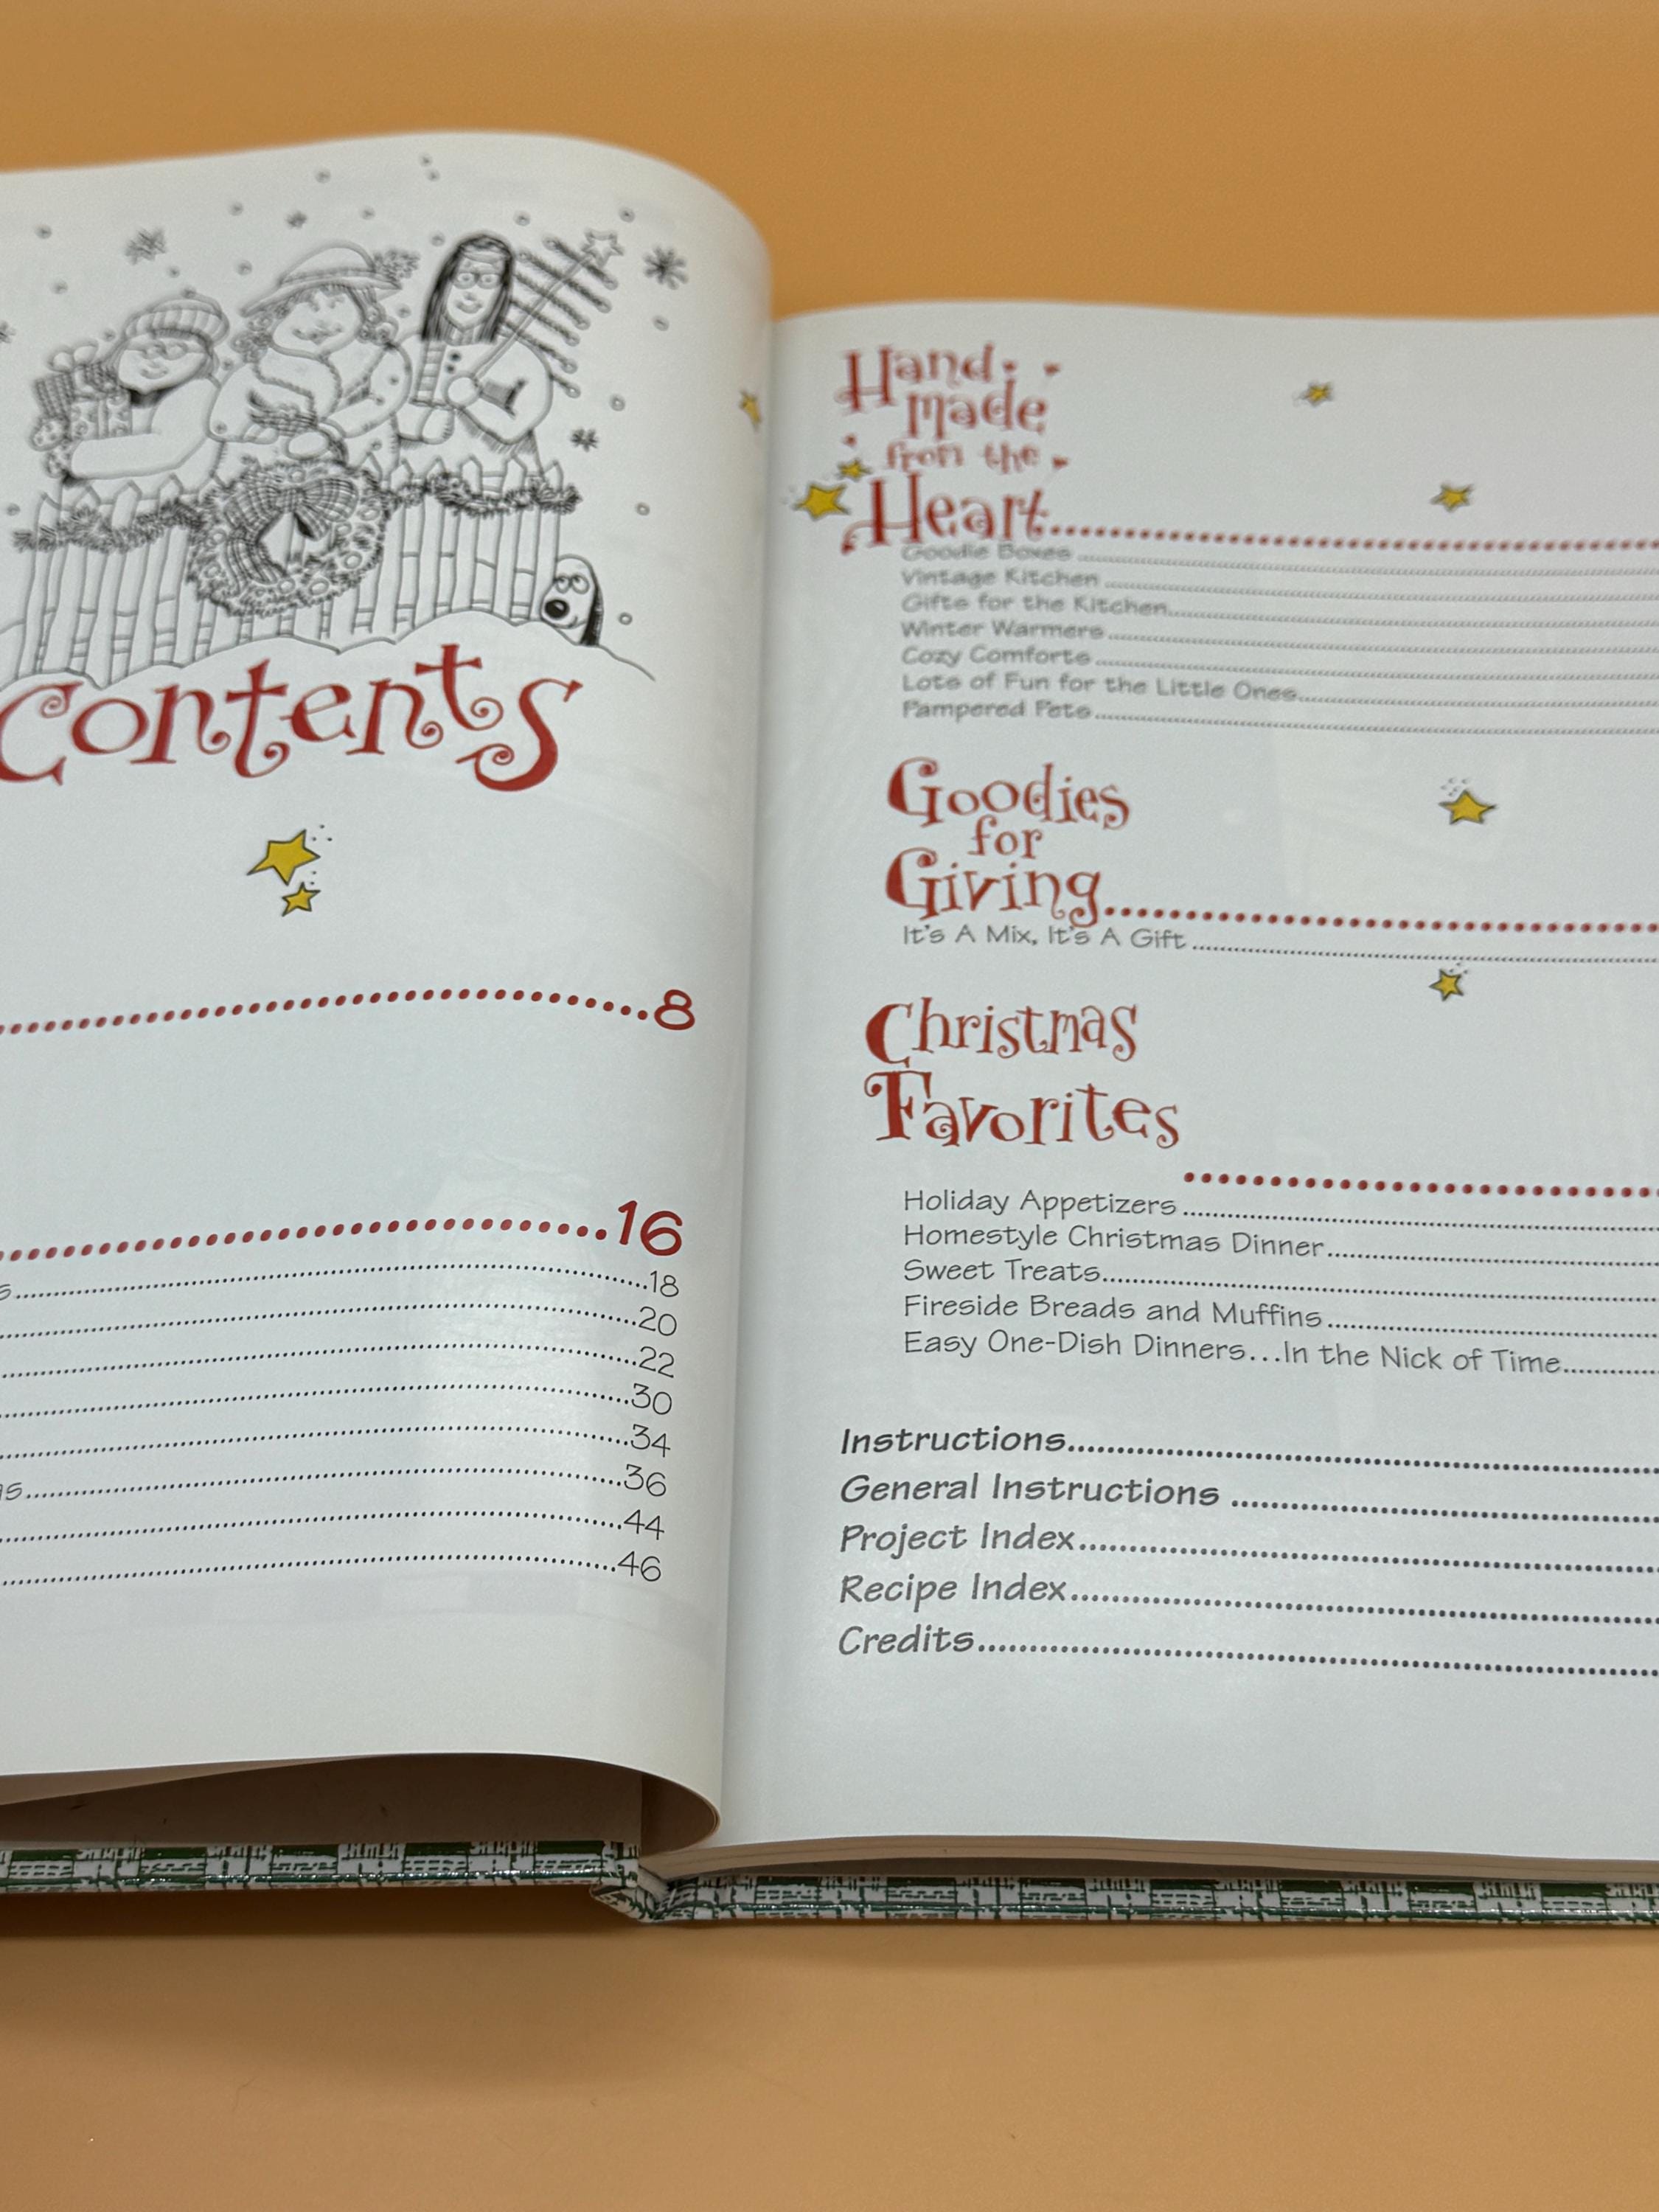 Contents
8
16
s 18
20
22
30
34
ns 36
44
46
Hand
made
from the
Heart
Goodie Boxes
Vintage Kitchen
Gifts for the Kitchen
Winter Warmers
Cozy Comforts
Lots of Fun for the Little Ones
Pampered Pets
Goodies
for
Giving
It's A Mix, It's A Gift
Christmas
Favorites
Holiday Appetizers
Homestyle Christmas Dinner
Sweet Treats
Fireside Breads and Muffins
Easy One-Dish Dinners...In the Nick of Time
Instructions
General Instructions
Project Index
Recipe Index
Credits